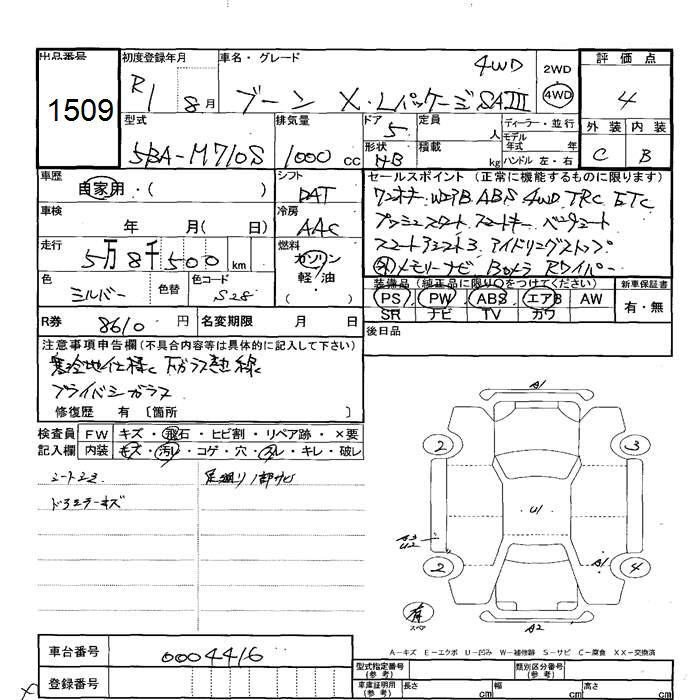 出品番号 1509
初度登録年月 R1 8月
車名・グレード ブーン X・Lパッケージ SAⅢ 4WD
2WD 4WD
評価点 4
外装 C 内装 B
型式 5BA-M710S
排気量 1000 cc
ドア 5
形状 HB
定員 人
積載 kg
ディーラー・並行
モデル年式 年
ハンドル 左・右
車歴 自家用・( )
シフト DAT
車検 年 月( 日)
冷房 AAC
走行 5万8千500 km
燃料 ガソリン 軽・油 ( )
色 シルバー
色替
色コード S28
R券 8610 円
名変期限 月 日
セールスポイント (正常に機能するものに限ります)
ワンオーナー WエアB ABS 4WD TRC ETC
プッシュスタート スマートキー
スマートアシスト3 アイドリングストップ
外 メモリーナビ Bカメラ Rワイパー
装備品 (純正品に限り○をつけてください)
PS PW ABS エアB AW
SR ナビ TV カワ
新車保証書 有・無
後日品
注意事項申告欄(不具合内容等は具体的に記入して下さい)
寒冷地仕様 Fガラス熱線
プライバシーガラス
修復歴 有〔箇所 〕
検査員記入欄
FW キズ・飛石・ヒビ割・リペア跡・×要
内装 キズ・汚れ・コゲ・穴・スレ・キレ・破レ
シートシミ
ドアミラーキズ
足廻り1部サビ
A1
2 3
U1
A3
U2
A1
2 4
有 スペア
A2
A-キズ E-エクボ U-凹み W-補修跡 S-サビ C-腐食 XX-交換済
車台番号 0004416
登録番号
型式指定番号(参考)
類別区分番号(参考)
車庫証明用(参考) 長さ cm 幅 cm 高さ cm